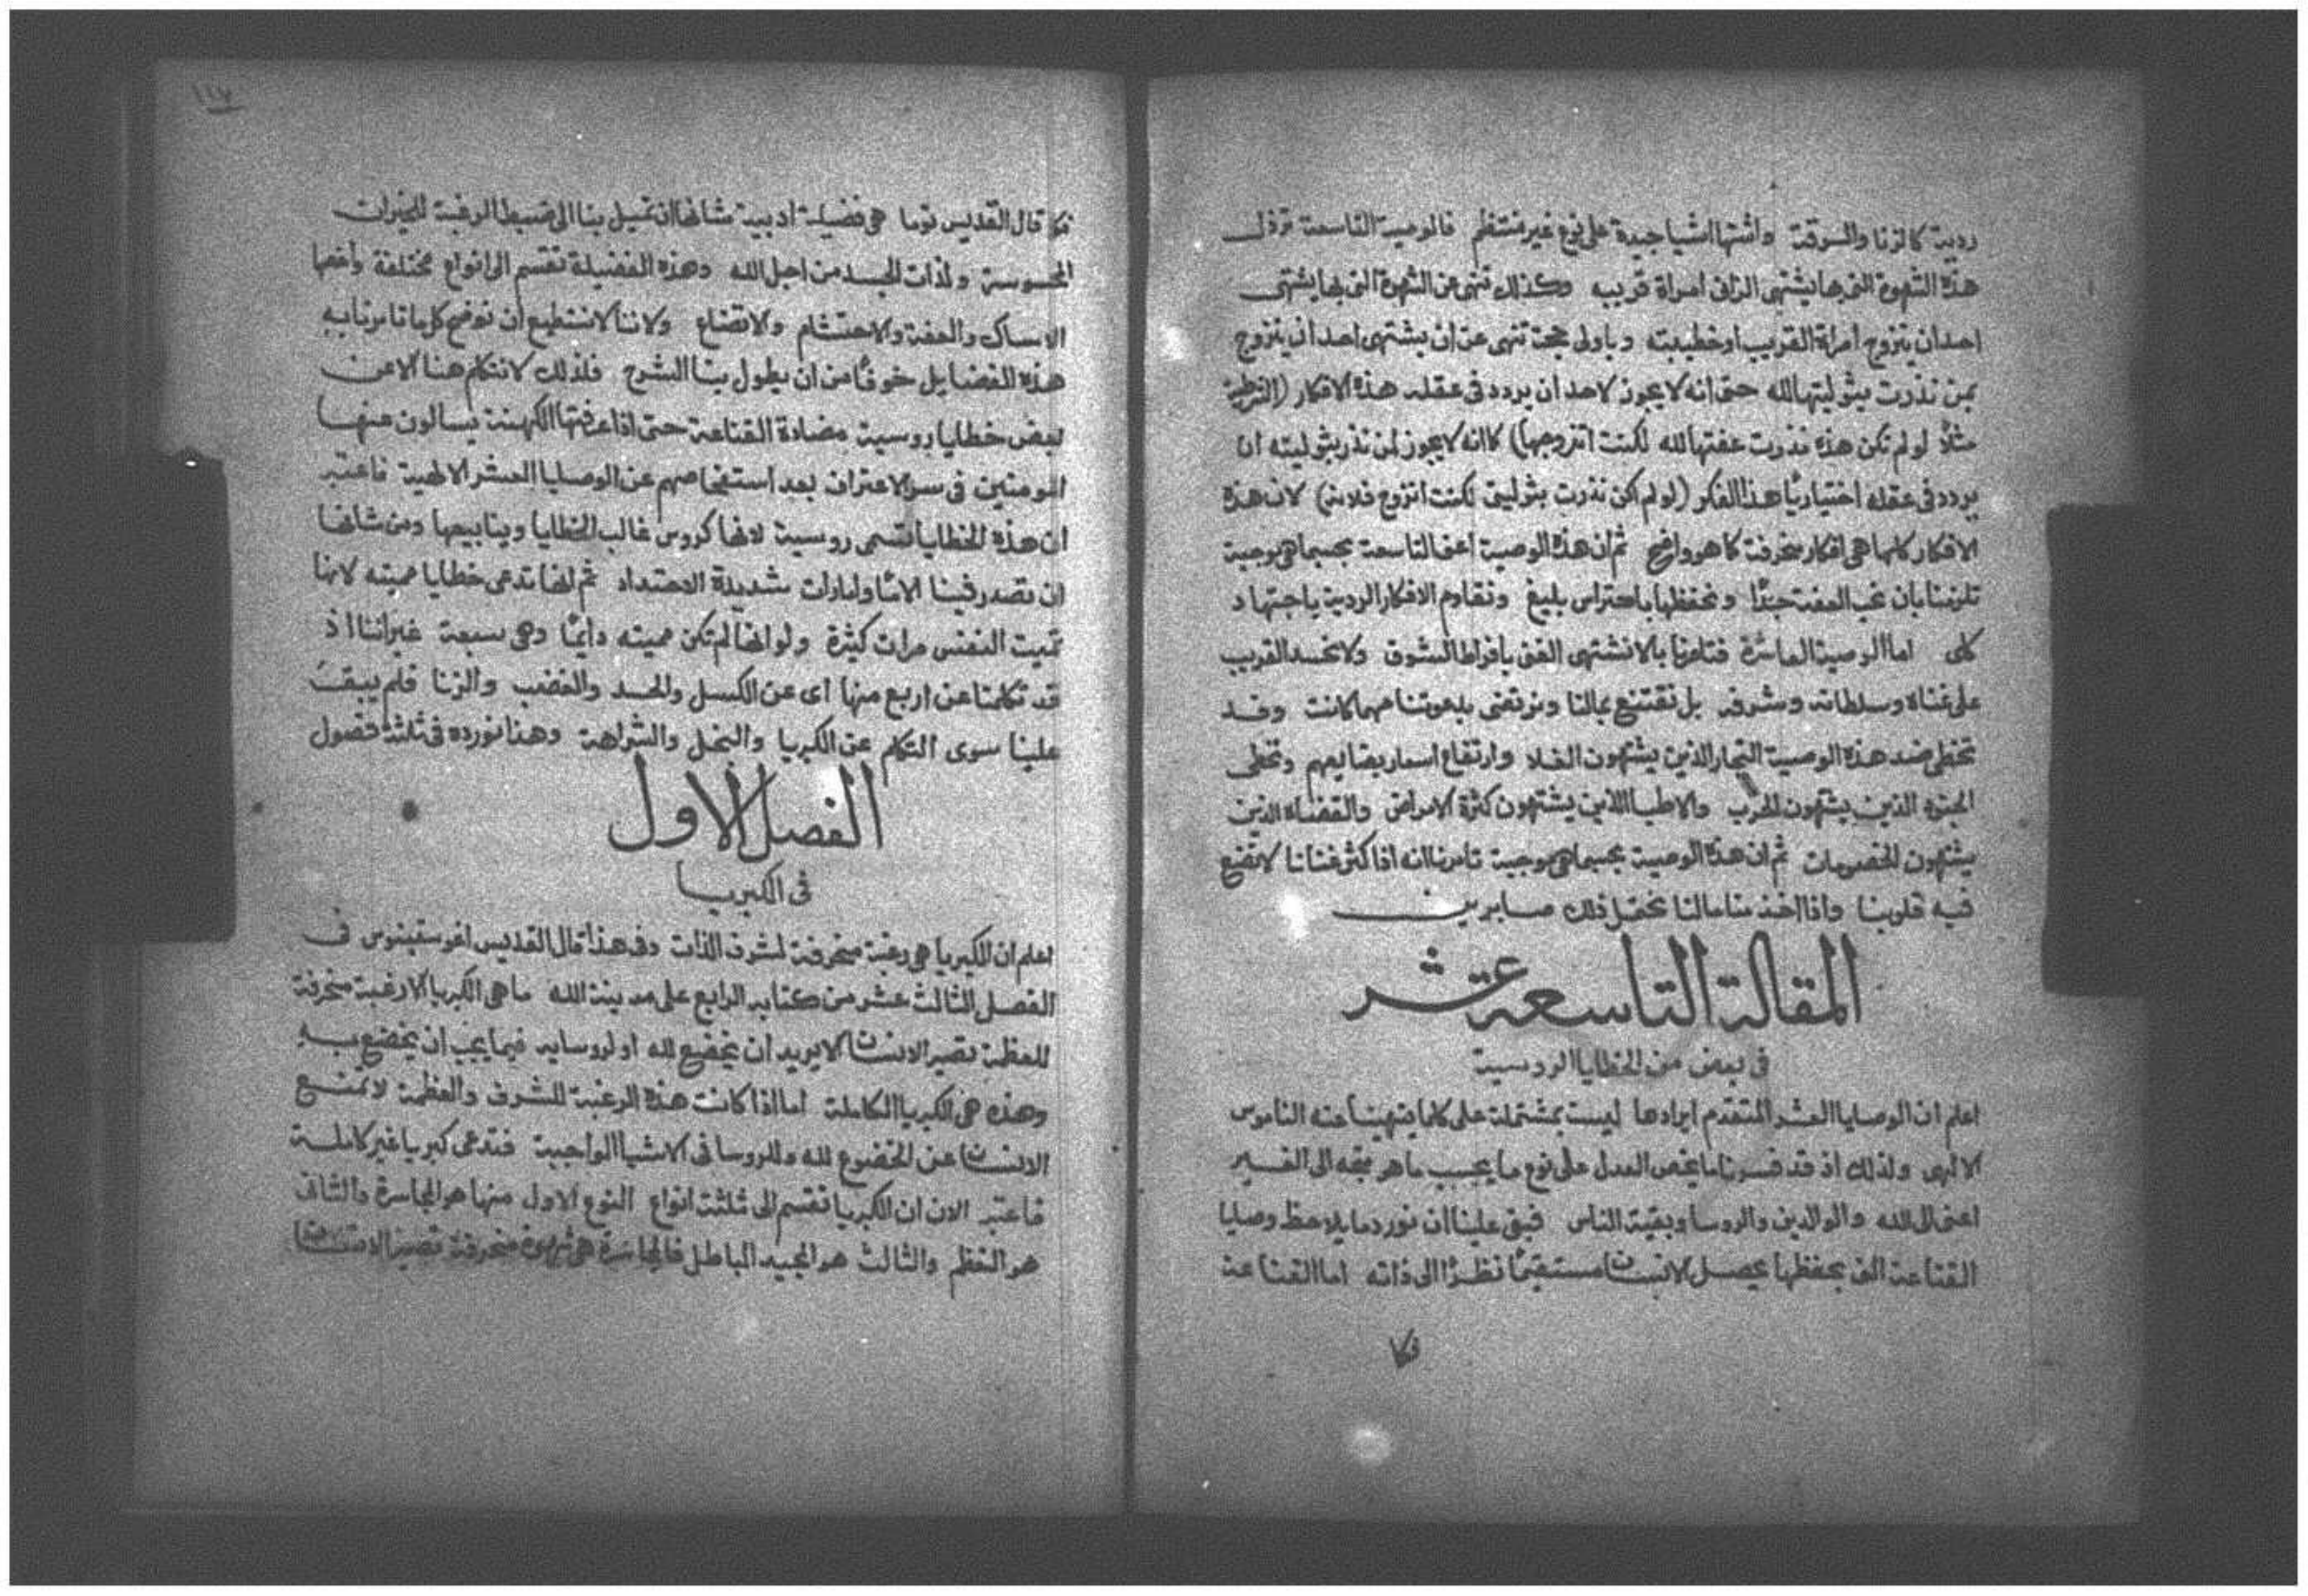 ردية كالزنا والسرقة واشتها اشيا جيدة على نوع غير منتظم فالوصية التاسعة ترذل
هذه الشهوة التي بها يشتهي الزاني امراة قريبه وكذلك تنهى عن الشهوة التي بها يشتهي
احد ان يتزوج امراة القريب او خطيبته وباولى حجة تنهى عن ان يشتهي احد ان يتزوج
بمن نذرت بتوليتها لله حتى انه لا يجوز لاحد ان يردد في عقله هذه الافكار
مثلًا لو لم تكن هذه نذرت عفتها لله لكنت اتزوجها) كما انه لا يجوز لمن نذر بتوليته ان
يردد في عقله اختياريًا هذا الفكر (لو لم اكن نذرت بتوليتي لكنت اتزوج فلانة) لان هذه
الافكار كلها هي افكار منحرفة كما هو واضح ثم ان هذه الوصية اعني التاسعة بحسبما هي موجبة
تلزمنا بان نحب العفة جدًا ونحفظها باحتراس بليغ ونقاوم الافكار الردية باجتهاد
كلى اما الوصية العاشرة فتامرنا بالا نشتهي الغنى بافراط الشوق ولا نحسد القريب
على غناه وسلطانه وشرفه بل نقتنع بمالنا ونرتضي بدعوتنا مهما كانت وضد
تخطي ضد هذه الوصية التجار الذين يشتهون الغلا وارتفاع اسعار بضايعهم وتخطي
الجنود الذين يشتهون الحرب والاطبا الذين يشتهون كثرة الامراض والقضاه الذين
يشتهون الخصومات ثم ان هذه الوصية بحسبما هي موجبة تامرنا انه اذا كثر غنانا لا نضع
فيه قلوبنا واذا اخذ منا مالنا نحتمل ذلك صابرين
المقالة التاسعة عشر
في بعض من الخطايا الروسية
اعلم ان الوصايا العشر المتقدم ايرادها ليست بمشتملة على كلما ينهينا عنه الناموس
الالهي ولذلك اذ قد فسرنا ما يخص العدل على نوع ما يجب ما هو متجه الى الغير
اعني الى الله والوالدين والروسا وبقية الناس فبقي علينا ان نورد ما يلاحظ وصايا
القناعة التي بحفظها يحصل الانسان مستقيمًا نظرًا الى ذاته اما القناعة
فكما
١١٧
فكما قال القديس توما هي فضيلة ادبية شانها ان تميل بنا الى ضبط الرغبة للخيرات
المحسوسة ولذات الجسد من اجل الله وهذه الفضيلة تنقسم الى انواع مختلفة واخصها
الامساك والعفة والاحتشام والاتضاع ولاننا لا نستطيع ان نوضح كل ما تامرنا به
هذه الفضايل خوفًا من ان يطول بنا الشرح فلذلك لا نتكلم هنا الا عن
بعض خطايا روسية مضادة القناعة حتى اذا عرفتها الكهنة يسالون عنها
المومنين في سر الاعتراف بعد استفحاصهم عن الوصايا العشر الالهية فاعتبر
ان هذه الخطايا تسمى روسية لانها كروس غالب الخطايا وينابيعها ومن شانها
ان تصدر فينا الامًا وامارات شديدة الاحتداد ثم انها تدعى خطايا مميته لانها
تميت النفس مرات كثيرة ولو انها لم تكن مميته دايمًا وهي سبعة غير اننا اذ
قد تكلمنا عن اربع منها اي عن الكسل والحسد والغضب والزنا فلم يبق
علينا سوى التكلم عن الكبريا والبخل والشراهة وهذا نورده في ثلثة فصول
الفصل الاول
في الكبريا
اعلم ان الكبريا هي رغبة منحرفة لشرف الذات وفي هذا قال القديس اغوستينوس في
الفصل الثالث عشر من كتابه الرابع على مدينة الله ما هي الكبريا الا رغبة منحرفة
للعظمة تصير الانسان الا يريد ان يخضع لله او لروسايه فيما يجب ان يخضع به
وهذه هي الكبريا الكاملة اما اذا كانت هذه الرغبة للشرف والعظمة لا تمنع
الانسان عن الخضوع لله وللروسا في الاشيا الواجبة فتدعى كبريا غير كاملة
فاعتبر الان ان الكبريا تنقسم الى ثلثة انواع النوع الاول منها هو المجاسرة والثاني
هو التعظم والثالث هو المجد الباطل فالمجاسرة هي شهوة منحرفة تصير الانسان